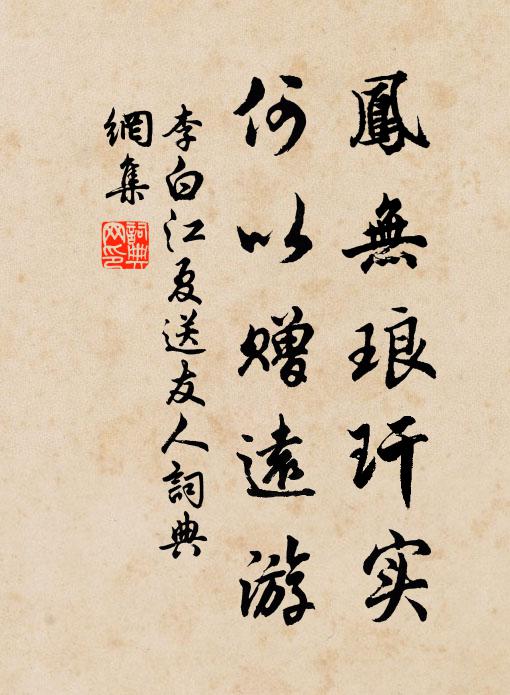 鳳無琅玕实
何以赠遠游
李白江夏送友人詞典
網集
詞典
网印